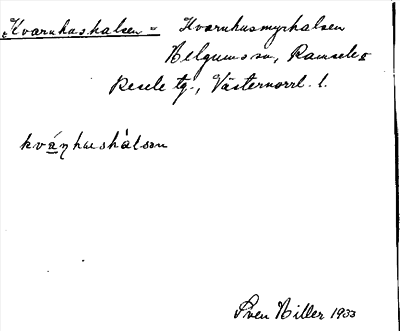 Kvarnhushalsen = Kvarnhusmyrhalsen
Helgums sn, Ramsele o
Resele tg., Västernorrl. l.
kváṇhushàlsen
Sven Hiller 1933